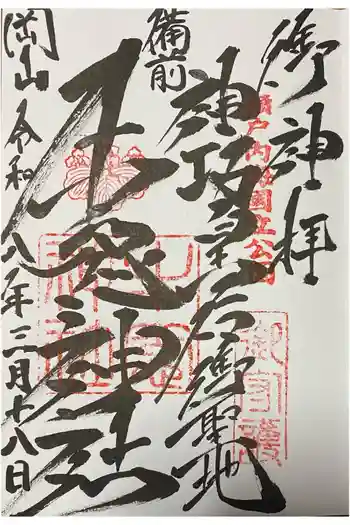 御神拝
瀬戸内海国立公園
神功皇后御聖地
御守護
備前
牛窓神社
岡山 令和八年三月十八日